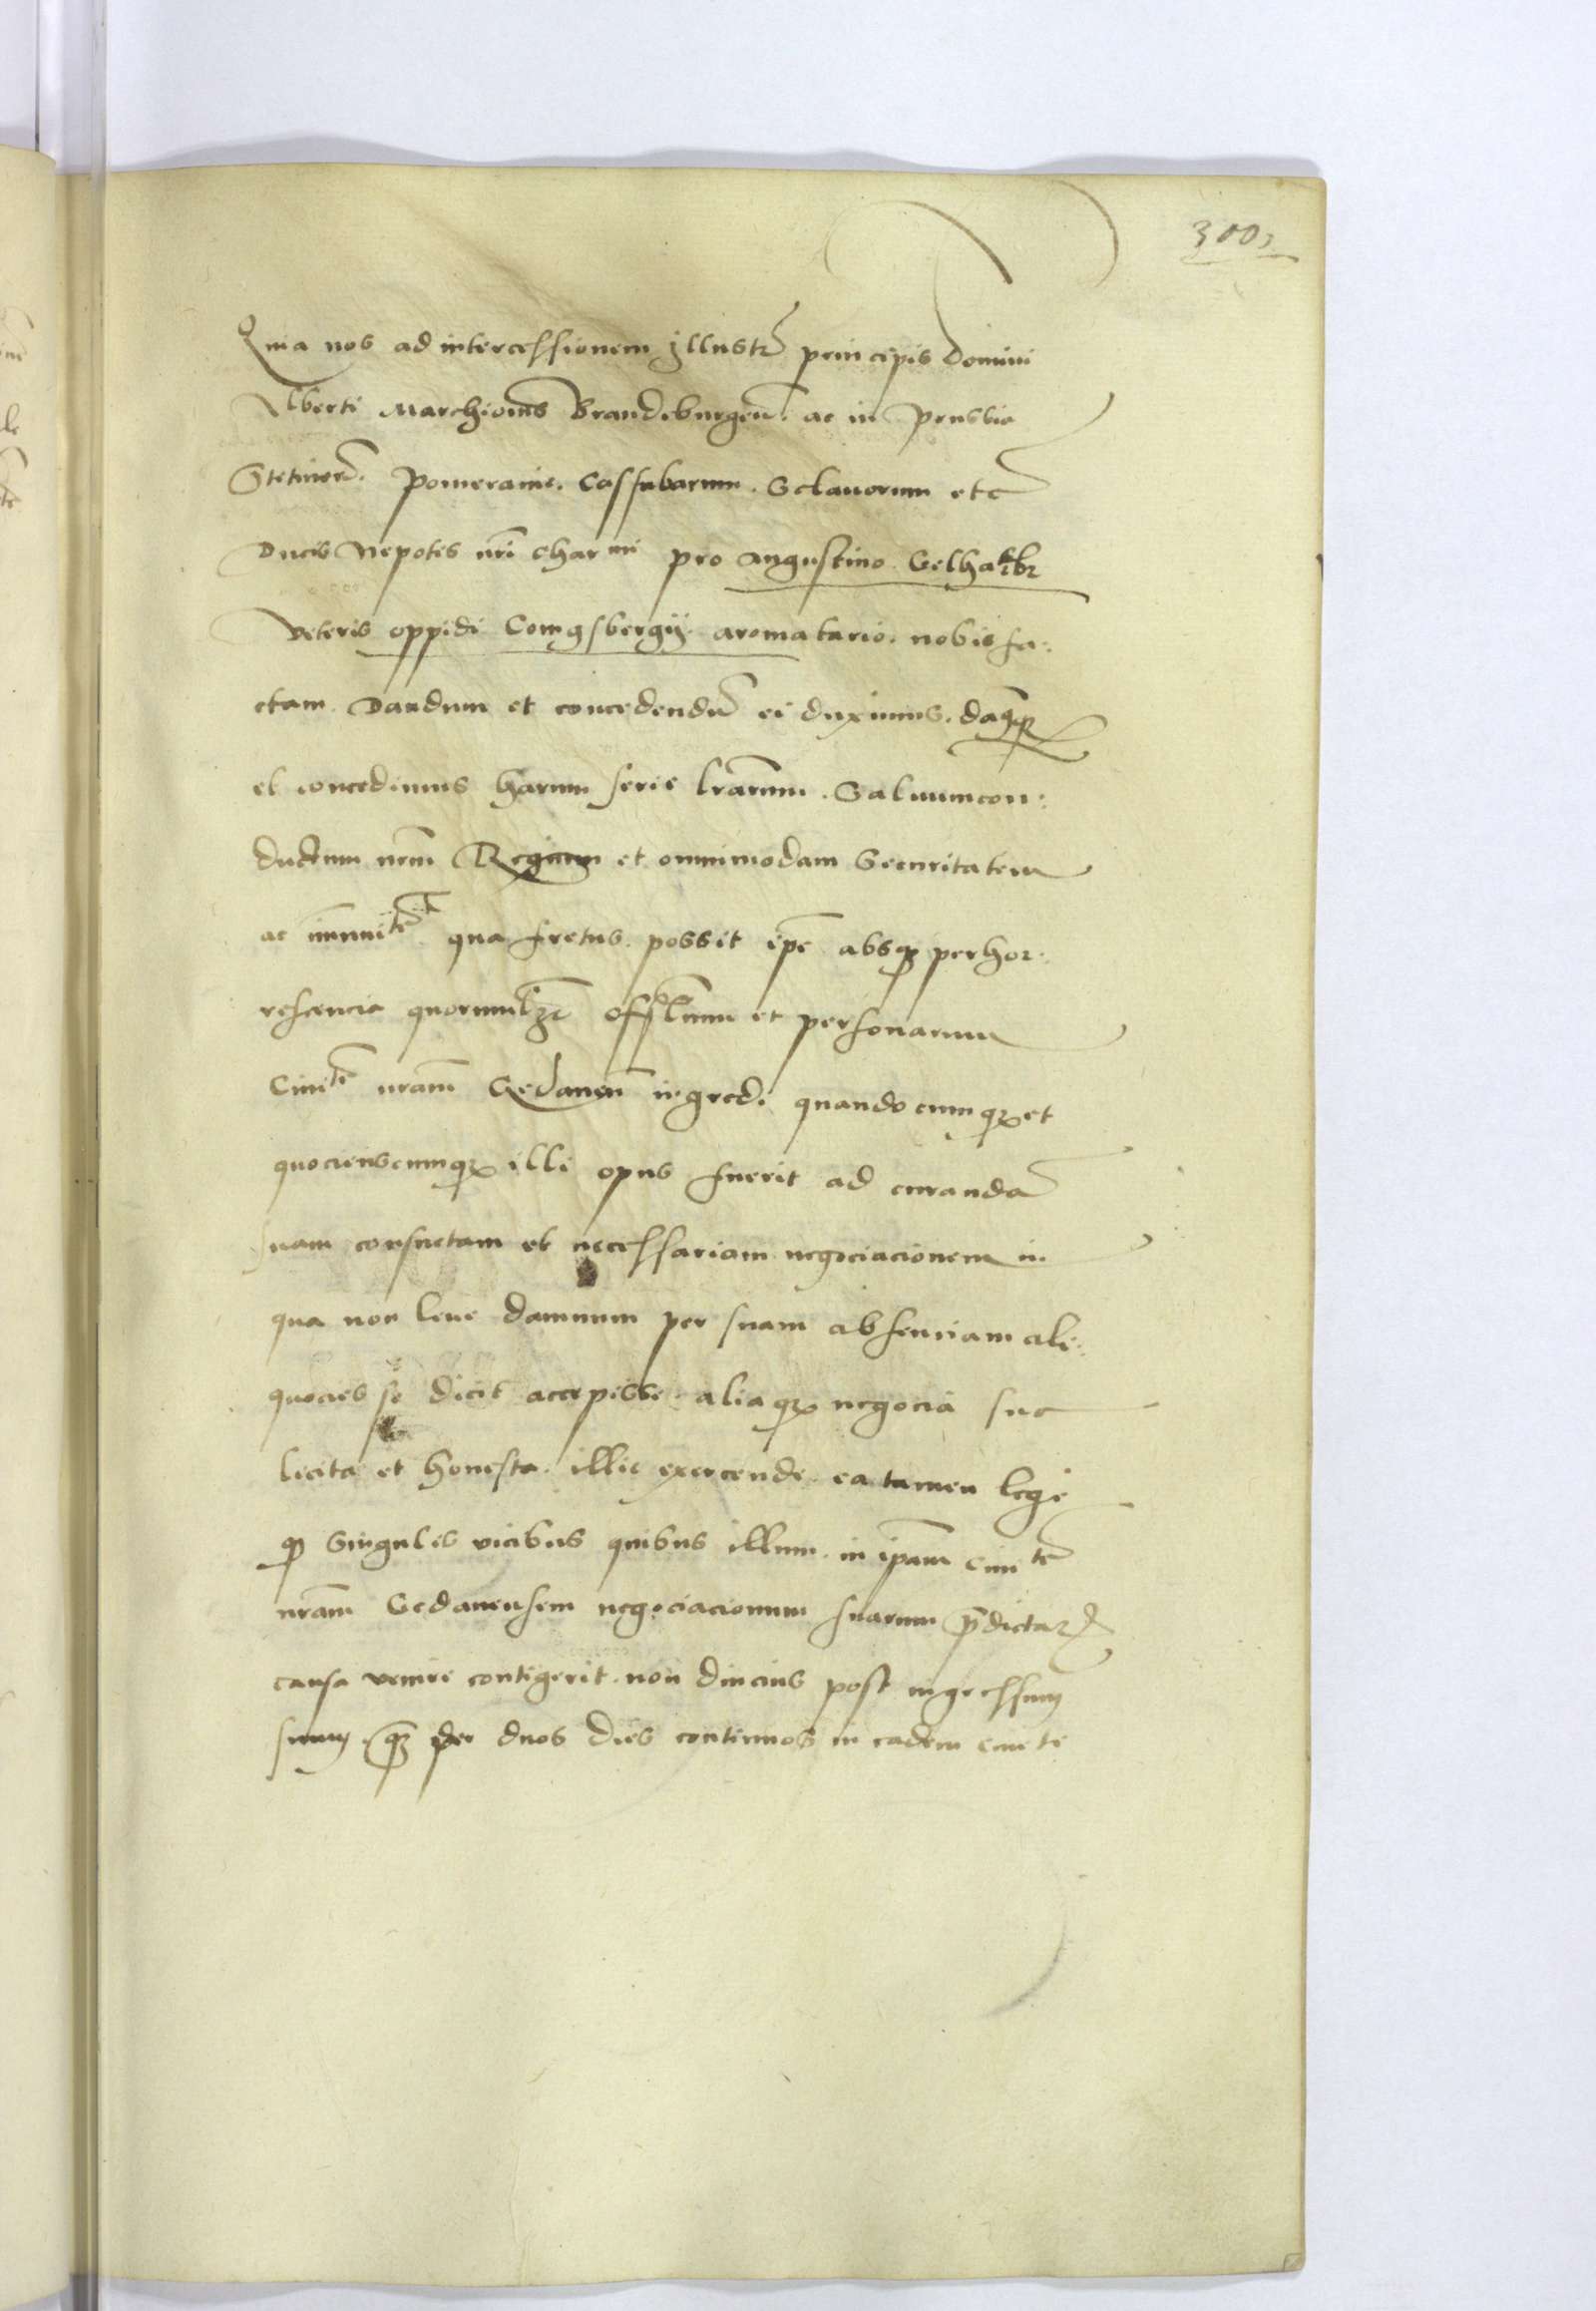 300
Quia nos ad intercessionem Illustr̃ principis Domini
Alberti Marchionis Brandeburgeñ. ac in Prussia
Stetineñ. Pomeranie. Cassubarum. Sclavorum etc
Ducis Nepotis nr̃i charmi pro Augustino
veteris oppidi Comgsbergij. aromatario. nobis fa:
ctam. Dandum et concedendũ ei duximus. damusq̃
et concedimus harum serie lr̃arum. Salvumcon:
ductum nrm̃ Regium et omnimodam Securitatem
ac immuitẽ qua fretus. possit ip̃e absq perhor:
rescencia quorumlzt offˡⁱᵘm et personarum
Civitẽ nram̃ Gedaneñ ingredi quandocumq et
quocienscumq illi opus fuerit ad curandã
suam consuetam et necessariam negociacionem in
qua non leve damnum per suam absenciam ali:
quocies se dicit accepisse. aliaq negocia sua
licita et honesta. illic exercendi. ea tamen lege
q̃ singulis vicibus quibus illum. in ip̃am civitẽ
nram̃ Gedanensem negociacionum suarum p̃dictar
causa venire contigerit. non diucius post ingressum
suum q̃ per duos dies continuos in eadem civite